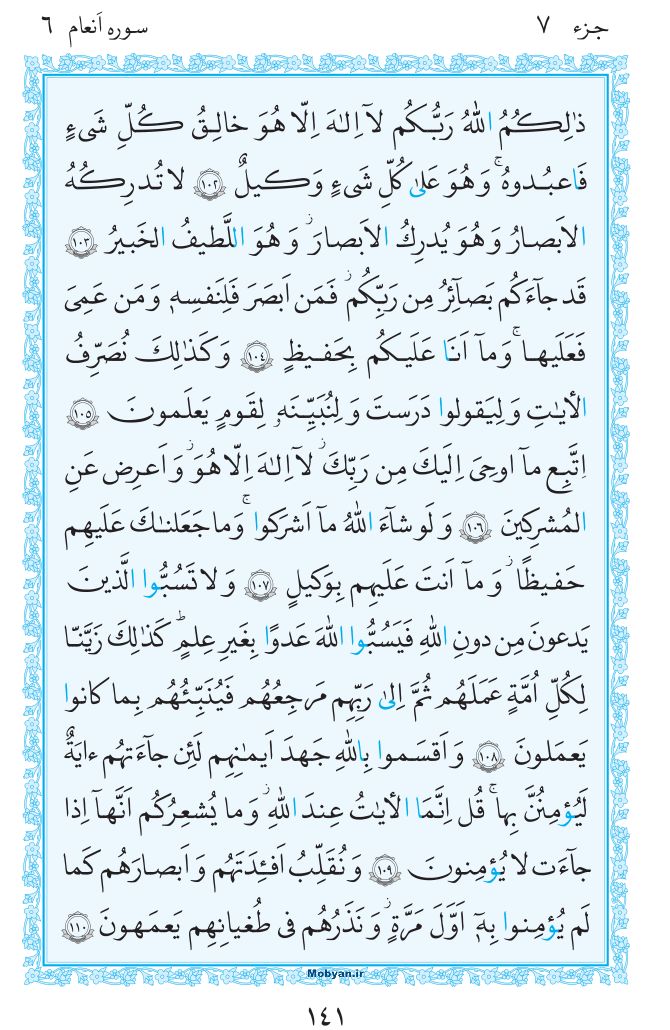 جزء ٧
سوره اَنعام ٦
ذٰلِكُمُ اللّٰهُ رَبُّكُم لآ اِلٰهَ اِلّا هُوَ خالِقُ كُلِّ شَیءٍ
فَاعبُدوهُ ۚ وَهُوَ عَلیٰ كُلِّ شَیءٍ وَكیلٌ ﴿١٠٢﴾ لا تُدرِكُهُ
الاَبصارُ وَهُوَ یُدرِكُ الاَبصارَ ۖ وَهُوَ اللَّطیفُ الخَبیرُ ﴿١٠٣﴾
قَد جآءَكُم بَصآئِرُ مِن رَبِّكُم ۖ فَمَن اَبصَرَ فَلِنَفسِهٖ وَمَن عَمِیَ
فَعَلَیها ۚ وَمآ اَنَا عَلَیكُم بِحَفیظٍ ﴿١٠٤﴾ وَكَذٰلِكَ نُصَرِّفُ
الاٰیٰتِ وَلِیَقولوا دَرَستَ وَلِنُبَیِّنَهٗ لِقَومٍ یَعلَمونَ ﴿١٠٥﴾
اِتَّبِع مآ اوحِیَ اِلَیكَ مِن رَبِّكَ ۖ لآ اِلٰهَ اِلّا هُوَ ۖ وَاَعرِض عَنِ
المُشرِكینَ ﴿١٠٦﴾ وَلَو شآءَ اللّٰهُ مآ اَشرَكوا ۗ وَما جَعَلنٰكَ عَلَیهِم
حَفیظًا ۖ وَمآ اَنتَ عَلَیهِم بِوَكیلٍ ﴿١٠٧﴾ وَلا تَسُبُّوا الَّذینَ
یَدعونَ مِن دونِ اللّٰهِ فَیَسُبُّوا اللّٰهَ عَدوًا بِغَیرِ عِلمٍ ۗ كَذٰلِكَ زَیَّنّا
لِكُلِّ اُمَّةٍ عَمَلَهُم ثُمَّ اِلیٰ رَبِّهِم مَرجِعُهُم فَیُنَبِّئُهُم بِما كانوا
یَعمَلونَ ﴿١٠٨﴾ وَاَقسَموا بِاللّٰهِ جَهدَ اَیمٰنِهِم لَئِن جآءَتهُم ءایَةٌ
لَیُؤمِنُنَّ بِها ۚ قُل اِنَّمَا الاٰیٰتُ عِندَ اللّٰهِ ۖ وَما یُشعِرُكُم اَنَّهآ اِذا
جآءَت لا یُؤمِنونَ ﴿١٠٩﴾ وَنُقَلِّبُ اَفئِدَتَهُم وَاَبصارَهُم كَما
لَم یُؤمِنوا بِهٖٓ اَوَّلَ مَرَّةٍ وَنَذَرُهُم فی طُغیانِهِم یَعمَهونَ ﴿١١٠﴾
Mobyan.ir
١٤١